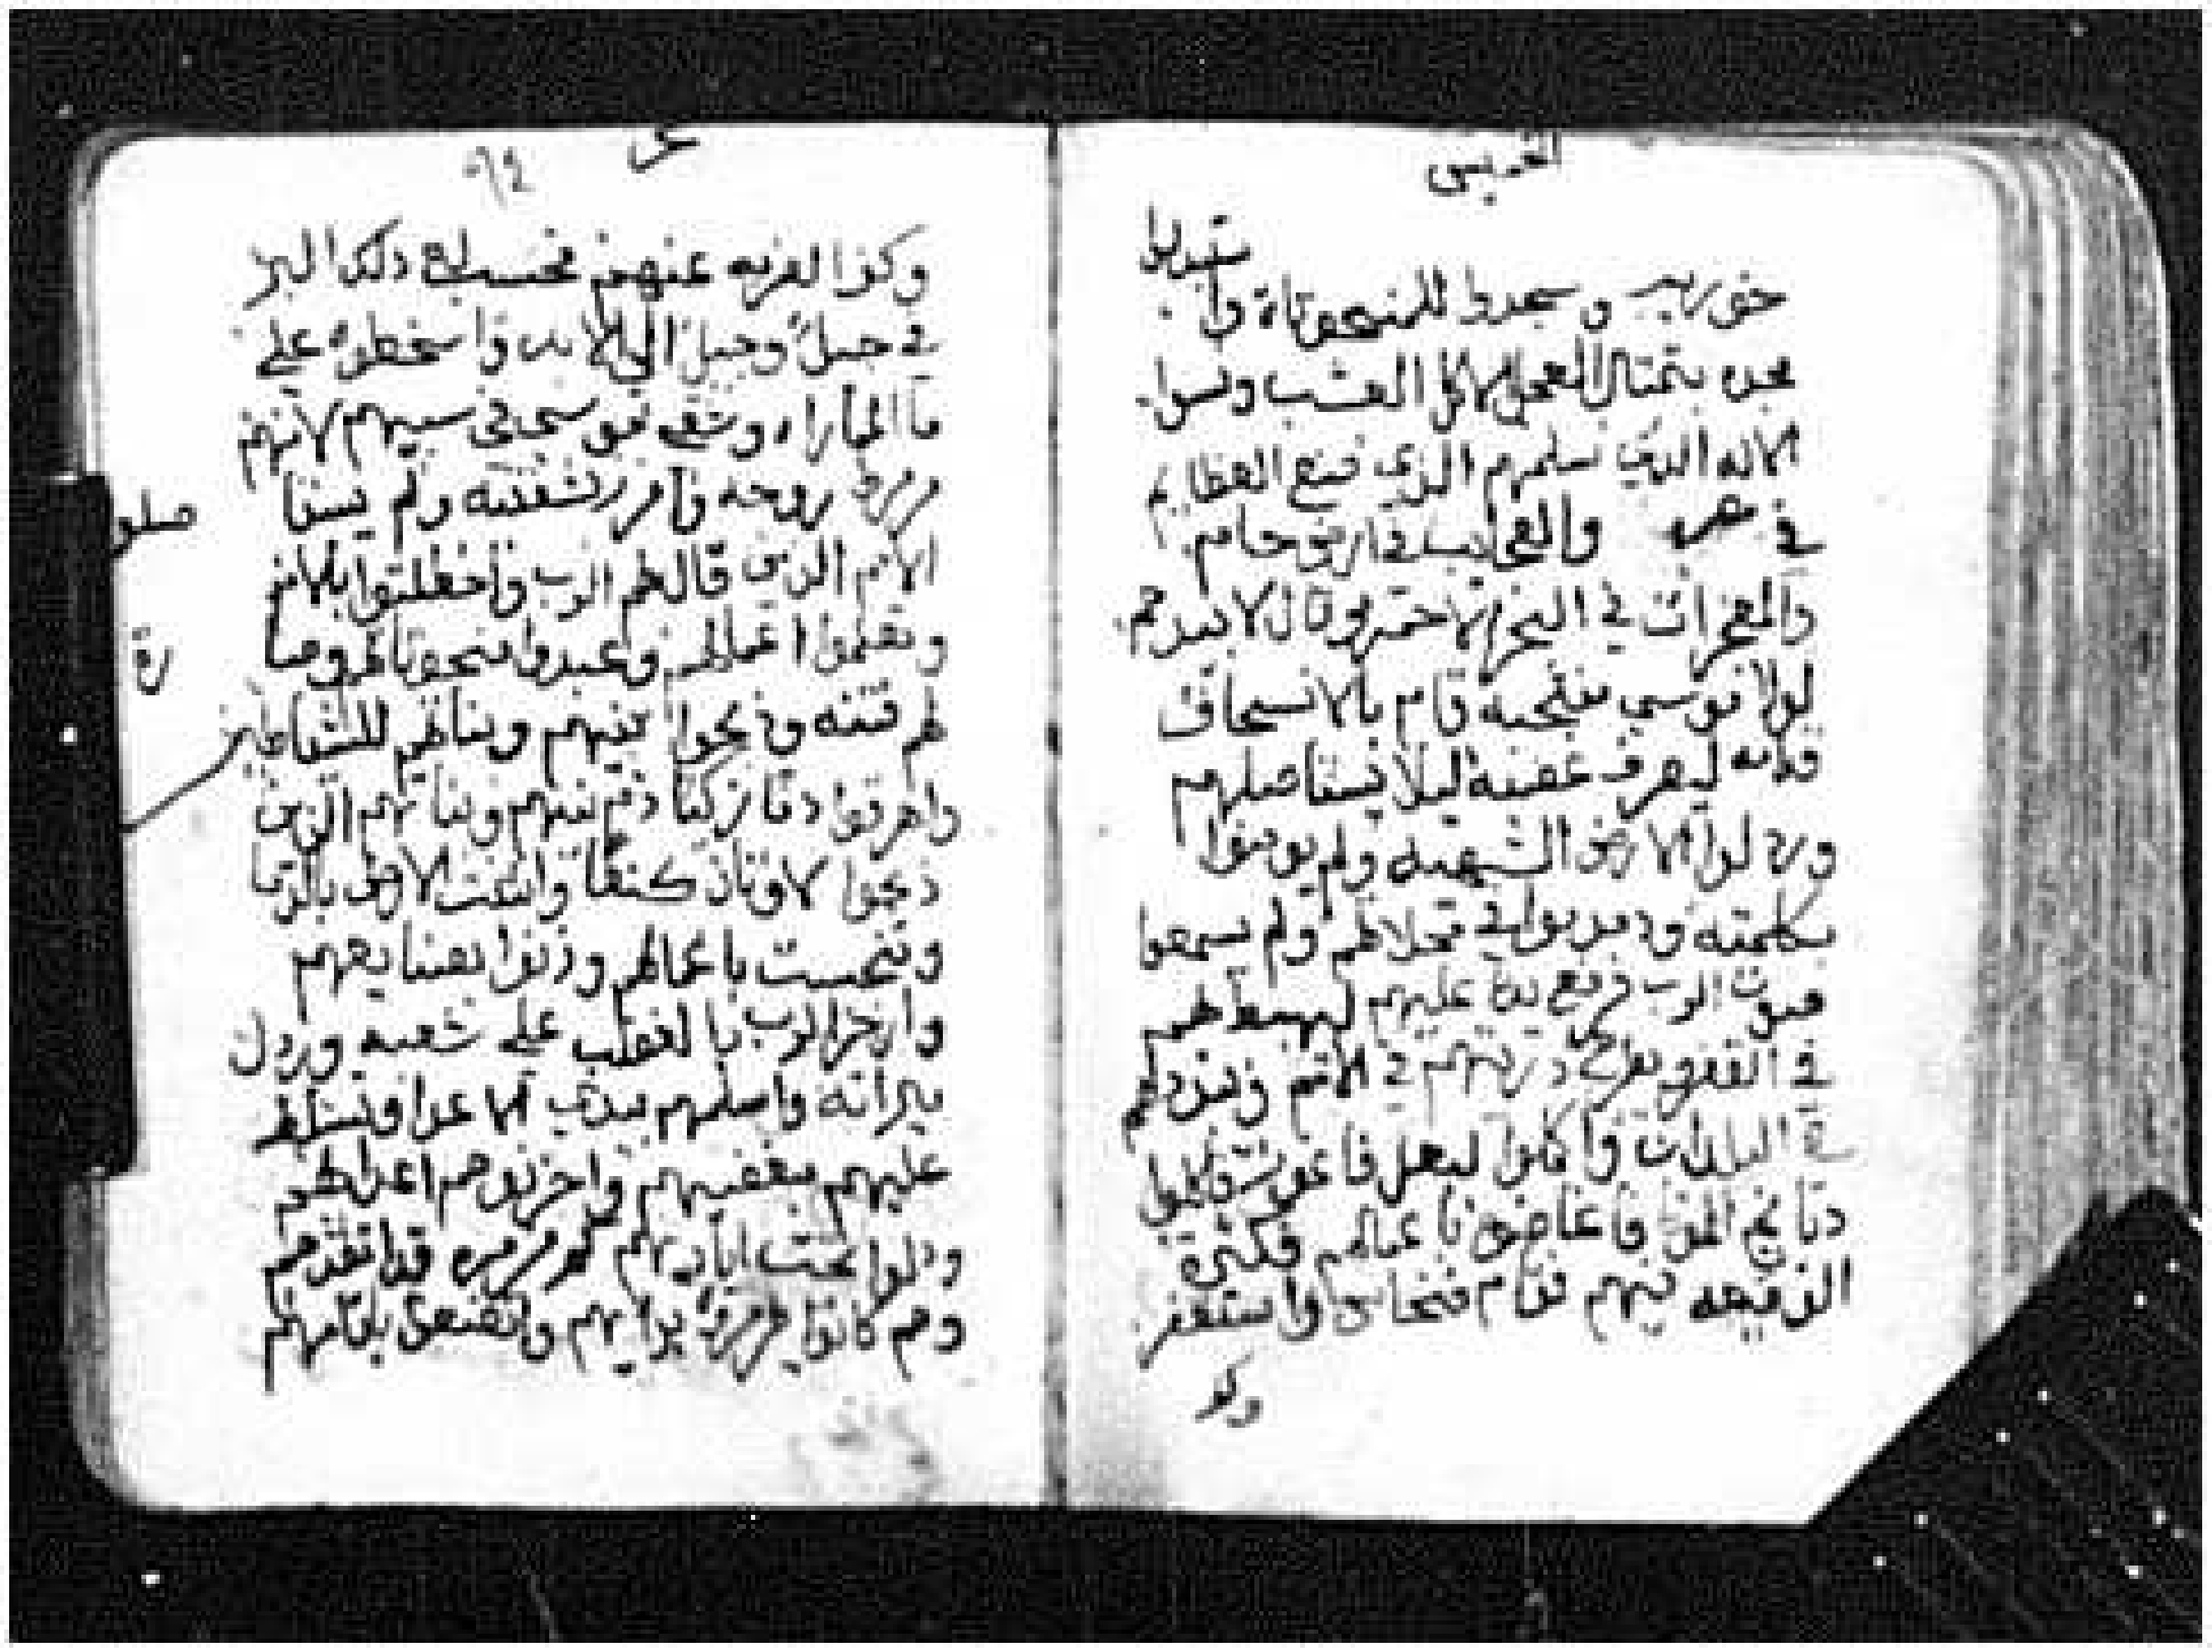 القديس
ستبدلوا
حوريب وسجدوا للمنحوتاة وا
مجده بتمثال العجل لاكل العشب ونسوا
الاله الذي سلمهم الذي صنع العظايم
في مصر والعجايب في ارض حام
والمعجزات في البحر الاحمر وقال لا بيدهم
لولا موسى منتجبه قام بالانسحاق
قدامه ليصرف غضبه ليلا يستاصلهم
وردلوا الارض الشهيه ولم يومنوا
بكلمته وتدمروا في محلاتهم ولم يسمعوا
صوت الرب فرفع يده عليهم ليهبطهم
في القفر ويطرح دريتهم في الامم ويفرقهم
في البلدان واكملوا لبعل فاغور واكلوا
دبايح الموتا واغاضوه باعمالهم فكثرة
الوقيعه فيهم فقام فنحاس واستغفر
وكف
عن
وكف الضربه عنهم فحسب له دلك البر
في جيل وجيل الي الابد واسخطوه علي
ما المماراه وشقي موسى في سببهم لانهم
مرمروا روحه وامر بشفتيه ولم يستا
صلو
الامم الدين قال لهم الرب واختلطوا بالامم
وتعلموا اعمالهم وعبدوا منحوتاتهم وصا
رة
لهم فتنه ودبحوا بنيهم وبناتهم للشياطين
واهرقوا دما زكيا دم بنيهم وبناتهم الدين
دبحوا لاوتان كنعان وامتلت الارض بالدما
وتنجست باعمالهم وزنوا بصنايعهم
واحتد الرب بالغضب علي شعبه وردل
ميراته واسلمهم بيدي الاعدا وتسلط
عليهم مبغضيهم واحزنوهم اعداهم
ودلوا تحت ايديهم مرار كثيره قد انقدهم
وهم كانوا يمرمروه برايهم واتضعوا باتامهم